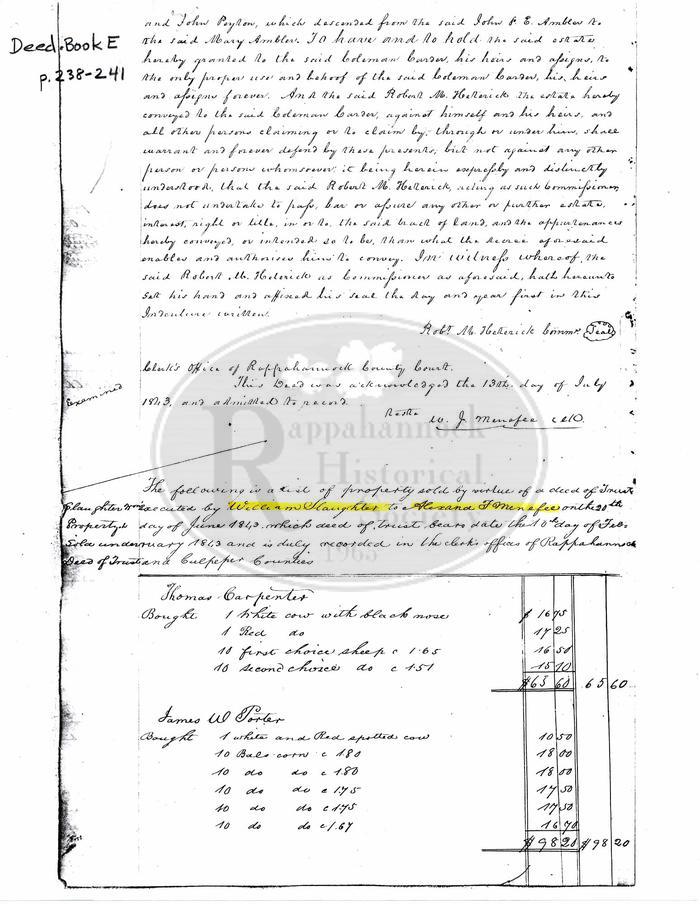 Deed Book E
p. 238-241
and John Peyton, which descended from the said John & E. Ambler to
the said Mary Ambler. To have and to hold the said estate
hereby granted to the said Coleman Carder, his heirs and assigns, to
the only proper use and behoof of the said Coleman Carder, his heirs
and assigns forever. And the said Robert M. Heterick the estate hereby
conveyed to the said Coleman Carder, against himself and his heirs, and
all other persons claiming or to claim by, through or under him, shall
warrant and forever defend by these presents, but not against any other
person or persons whomsoever: it being herein expressly and distinctly
understood, that the said Robert M. Heterick, acting as such Commissioner
does not undertake to pass, bar or assure any other or further estate,
interest, right or title, in or to, the said tract of land, and the appurtenances
hereby conveyed, or intended so to be, than what the decree aforesaid
enables and authorises him to convey. In witness whereof, the
said Robert M. Heterick as Commissioner as aforesaid, hath hereunto
set his hand and affixed his seal the day and year first in this
Indenture written.
Robt. M. Heterick Commr. Seal
Clerk's Office of Rappahannock County Court.
This Deed was acknowledged the 13th. day of July
Examined
1843, and admitted to record.
Teste W. J. Menefee
Rappahannock
Historical
1965
The following is a list of property sold by virtue of a deed of Trust
Slaughter Wm executed by William Slaughter to Alexand J Menefee on the 20th
Property day of June 1843. which deed of trust bears date the 10th day of Feb-
Sold under ruary 1843 and is duly recorded in the clerks offices of Rappahannock
Deed of Trust and Culpeper Counties
Thomas Carpenter
Bought 1 White cow with black nose $ 16 75
1 Red do 17 25
10 first choice sheep c 1.65 16 50
10 second choice do c 1.51 15 10
$65 60 65 60
James W Porter
Bought 1 white and Red spotted cow 10 50
10 Bals corn c 1.80 18 00
10 do do c 1.80 18 00
10 do do c 1.75 17 50
10 do do c 1.75 17 50
10 do do c 1.67 16 70
$98 20 $98 20